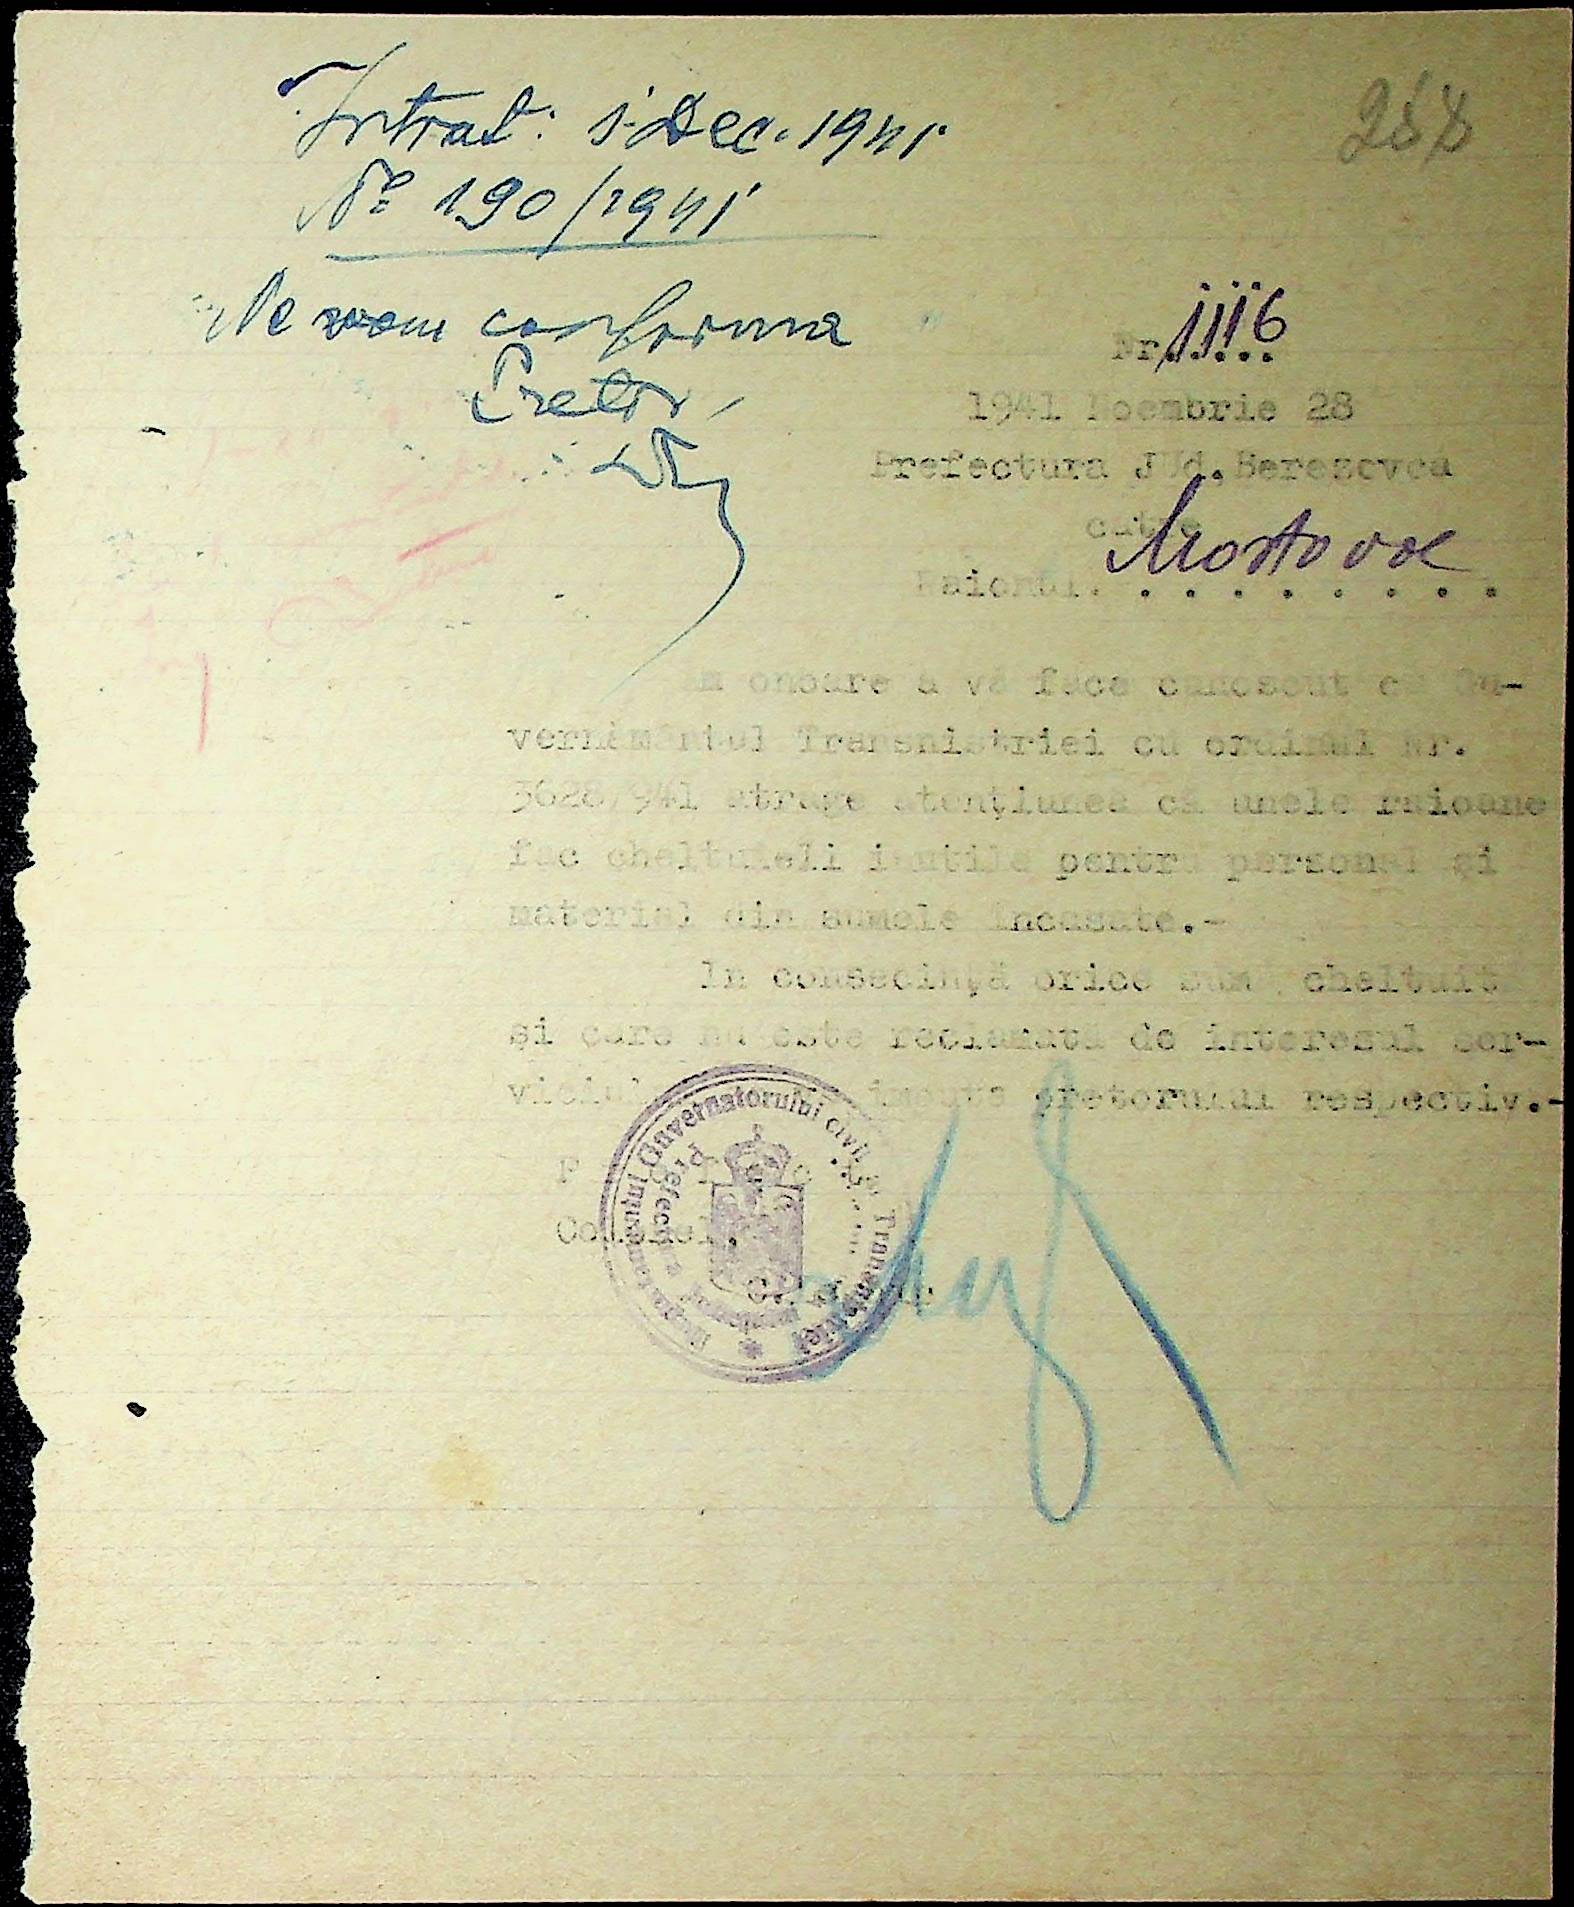 Intrat: 1 Dec. 1941
No 190/1941
Ne vom conforma
Pretor,
Nr. 1116
1941 Noembrie 28
Prefectura JUd. Berezovca
către
Raionul. Mostovoe
Am onoare a vă face cunoscut că Gu-
vernământul Transnistriei cu ordinul Nr.
3628/941 atrage atenţiunea că unele raioane
fac cheltuieli inutile pentru personal şi
material din sumele încasate.-
In consecinţă orice sumă cheltuit
şi care nu este reclamată de interesul ser-
viciului pretorului respectiv.-
Colonel,
Administraţiei Guvernatorului civil al Transnistriei
Prefectura